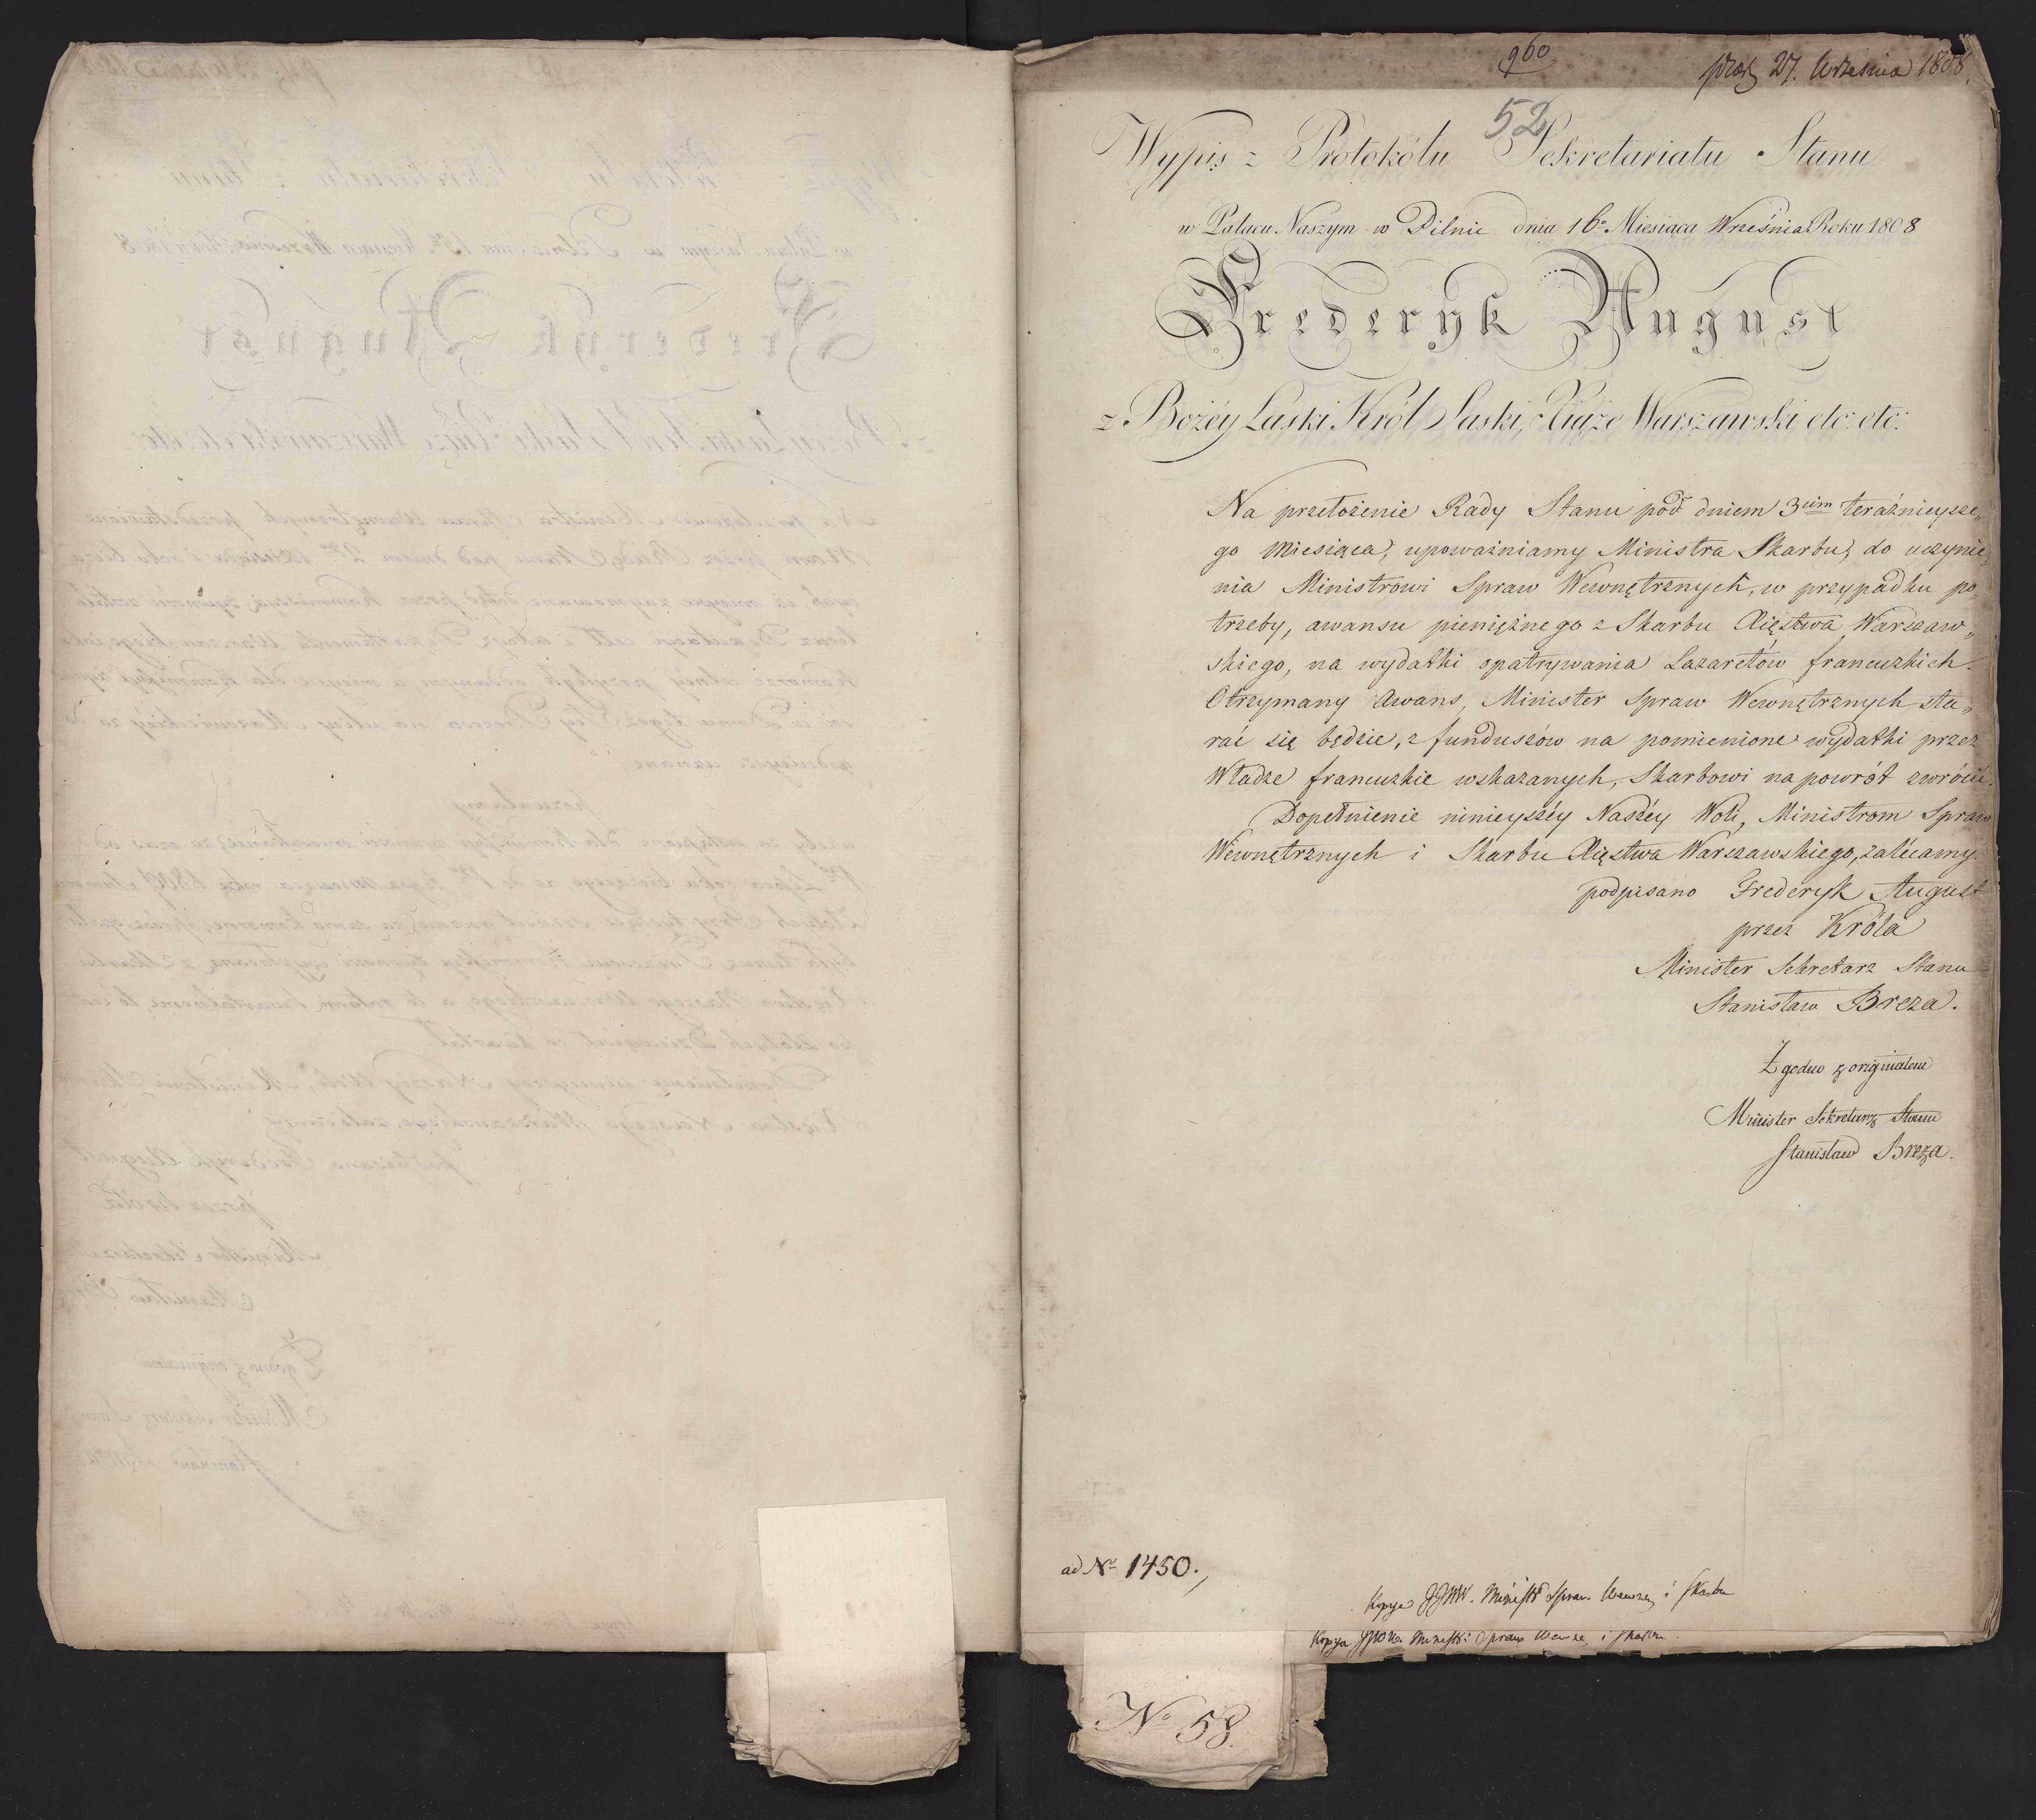 960
praes 27. Września 1808.
52
Wypis z Protokólu Sekretariatu Stanu
w Pałacu Naszym w Pilnic dnia 16º Miesiąca Września Roku 1808
Frederyk August
z Bożéy Łaski Król Saski, Xiąże Warszawski etc: etc:
Na przełożenie Rady Stanu pod dniem 3cim teraźnieysze„
go Miesiąca, upoważniamy Ministra Skarbu, do uczynie„
nia Ministrowi Spraw Wewnętrznych, w przypadku po„
trzeby, awansu pieniężnego z Skarbu Xięstwa Warszaw„
skiego, na wydatki opatrywania Lazaretów francuzkich.
Otrzymany Awans, Minister Spraw Wewnętrznych sta„
rać się będzie, z funduszów na pomienione wydatki przez
Władze francuzkie wskazanych, Skarbowi na powrót zwrócić.
Dopełnienie ninieyszéy Naszéy Woli, Ministrom Spraw
Wewnętrznych i Skarbu Xięstwa Warszawskiego, zalécamy.
podpisano Frederyk August
przez Króla
Minister Sekretarz Stanu
Stanisław Breza.
Zgodno z originałem
Minister Sekretarz Stanu
Stanisław Breza.
ad Nr 1450.
Kopya JJWW. Ministr Spraw Wewnę i Skarbu
Kopya JJWW. Ministr: Spraw Wewnę i Skarbu
No 58.